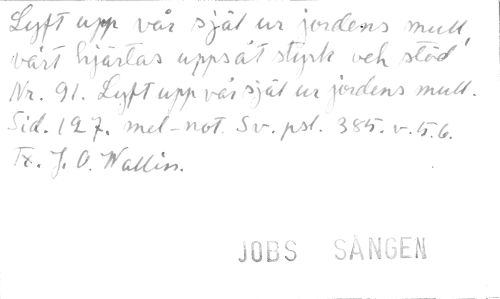 Lyft upp vår själ ur jordens mull,
vårt hjärtas uppsåt styrk och stöd
Nr. 91. Lyft upp vår själ ur jordens mull.
Sid. 127. mel-not. Sv. psl. 385. v. 5.6.
Tx. J. O. Wallin.
JOBS SÅNGEN